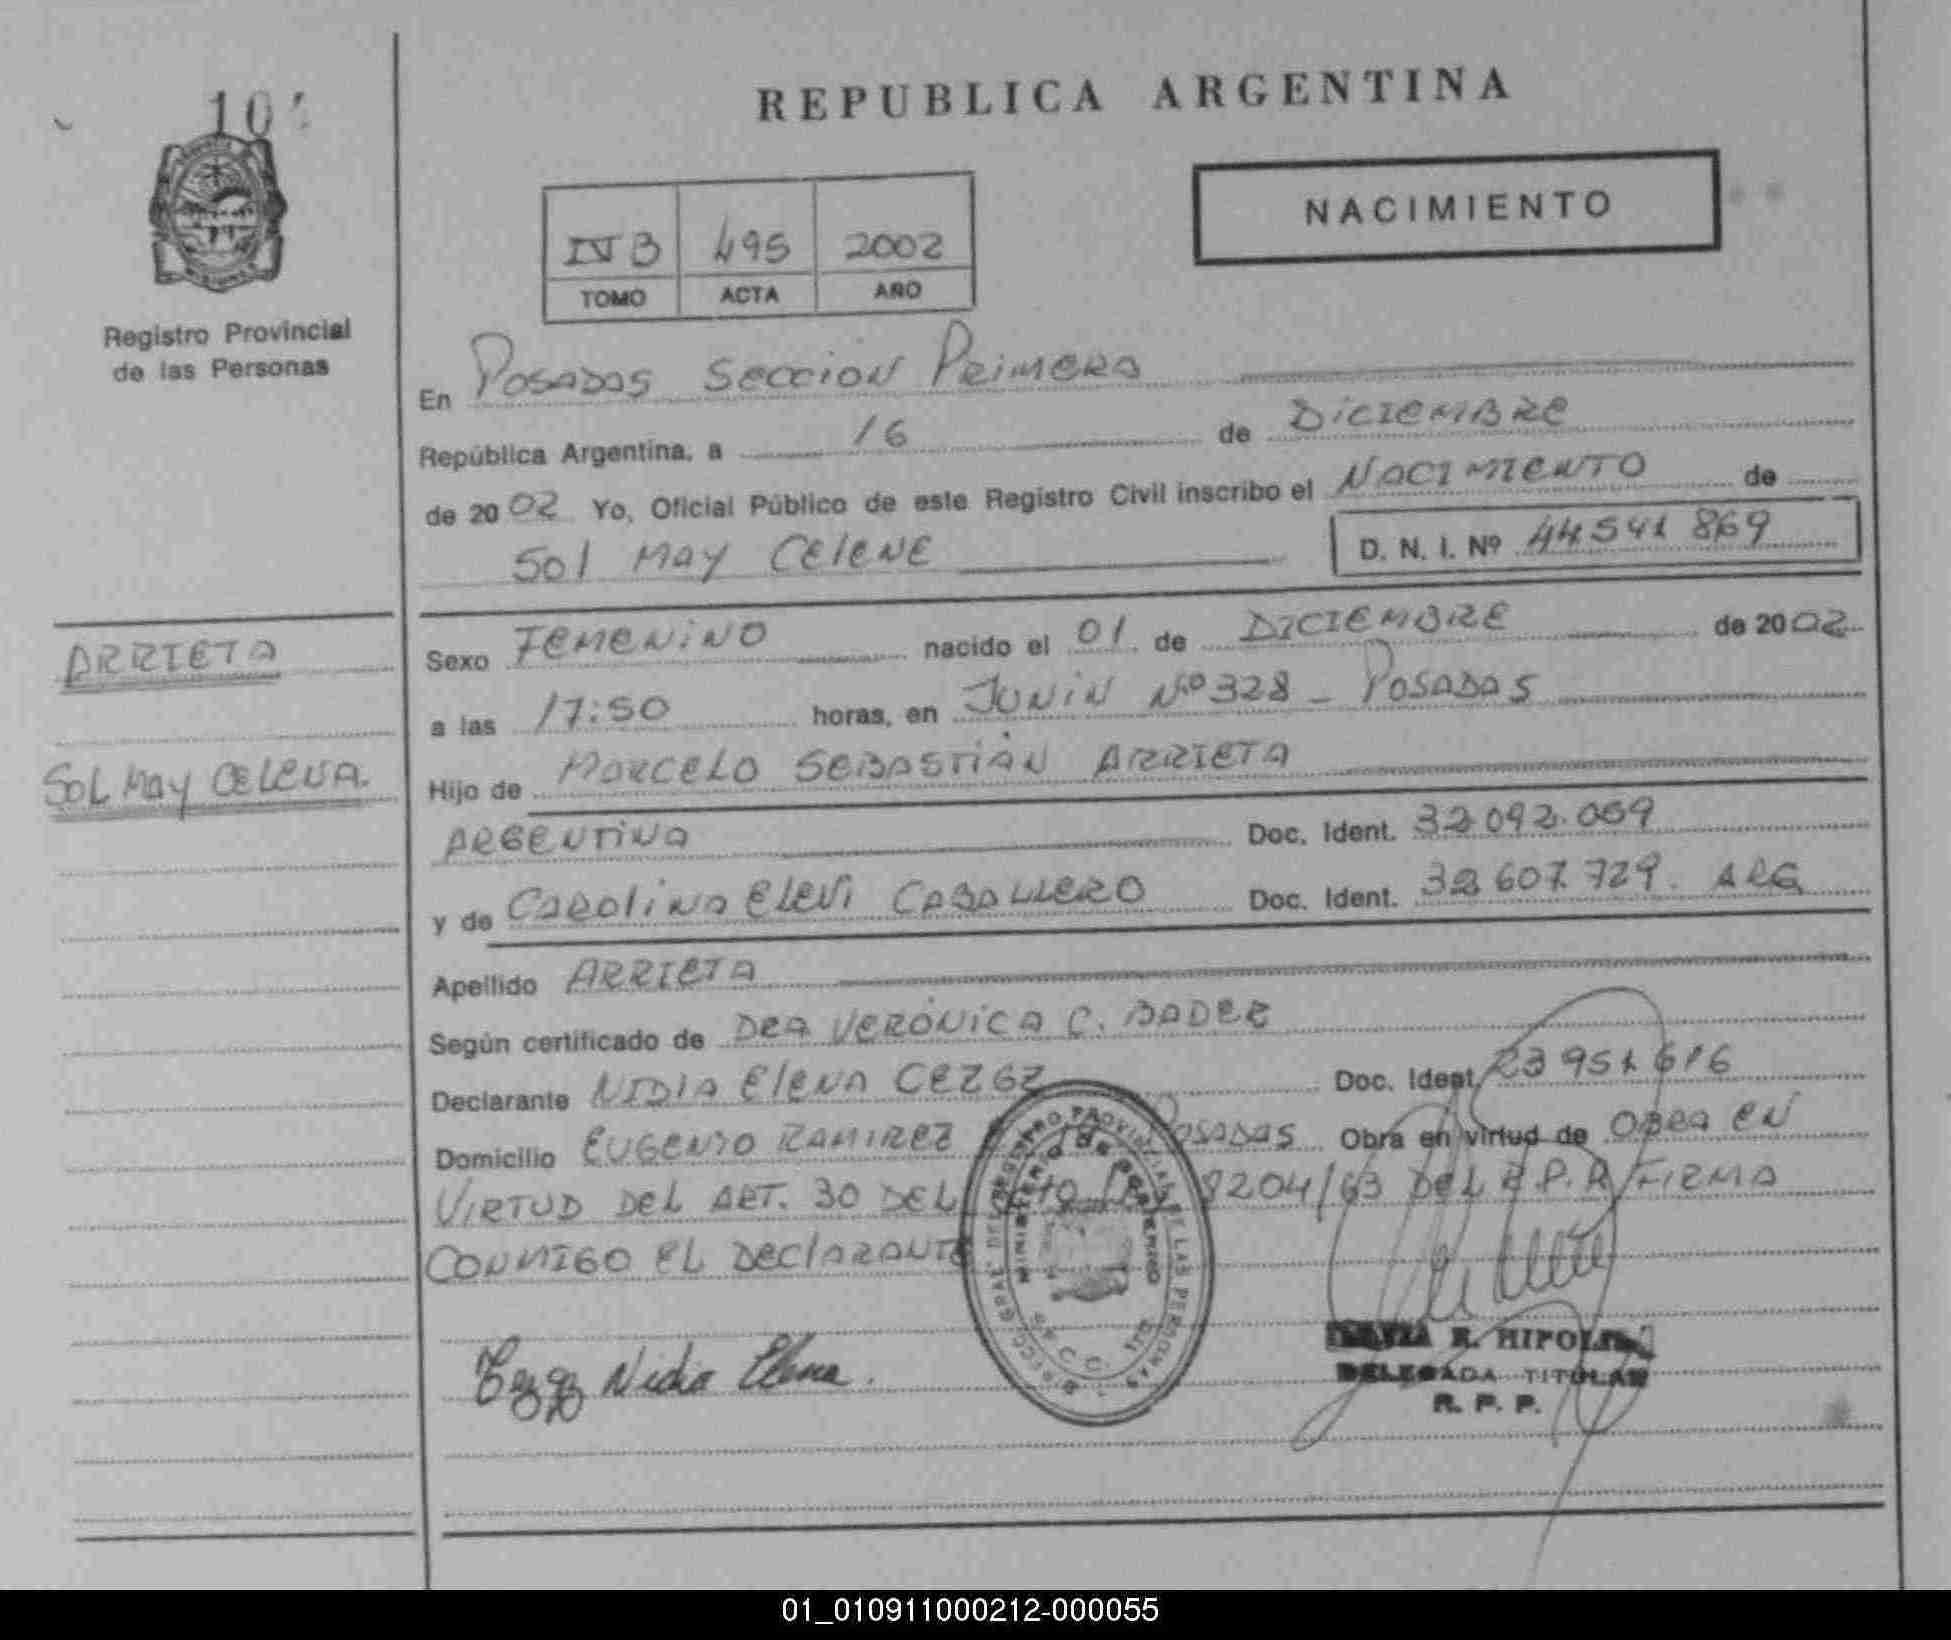 REPUBLICA ARGENTINA
NACIMIENTO
IV B 495 2002
TOMO ACTA AÑO
Registro Provincial
de las Personas
En POSADAS SECCION PRIMERA
República Argentina, a 16 de DICIEMBRE
de 2002 Yo, Oficial Público de este Registro Civil inscribo el NACIMIENTO de
SOl MAY CElENE D. N. I. Nº 44541869
ARRIETA
SOL MAY CELENA.
Sexo FEMENINO nacido el 01 de DICIEMBRE de 2002
a las 17:50 horas, en JUNIN Nº 328 - POSADAS
Hijo de MARCELO SEBASTIÁN ARRIETA
ARGENTINA Doc. Ident. 32.092.059
y de CAROliNA ElEVI CABALLERO Doc. Ident. 32.607.729. ARG
Apellido ARRIETA
Según certificado de DRA VERÓNICA C. BADER
Declarante NIDIA ElENA Doc. Ident. 23951616
Domicilio EUGENIO RAMIREZ POSADAS Obra en virtud de OBRA EN
VIRTUD DEL ART. 30 DEL 8204/63 DEL R.P.P. FIRMA
CONMIGO EL DEClARANTE
Nidia Elena.
R. HIPOLI
DELEGADA TITULAR
R. P. P.
01_010911000212-000055